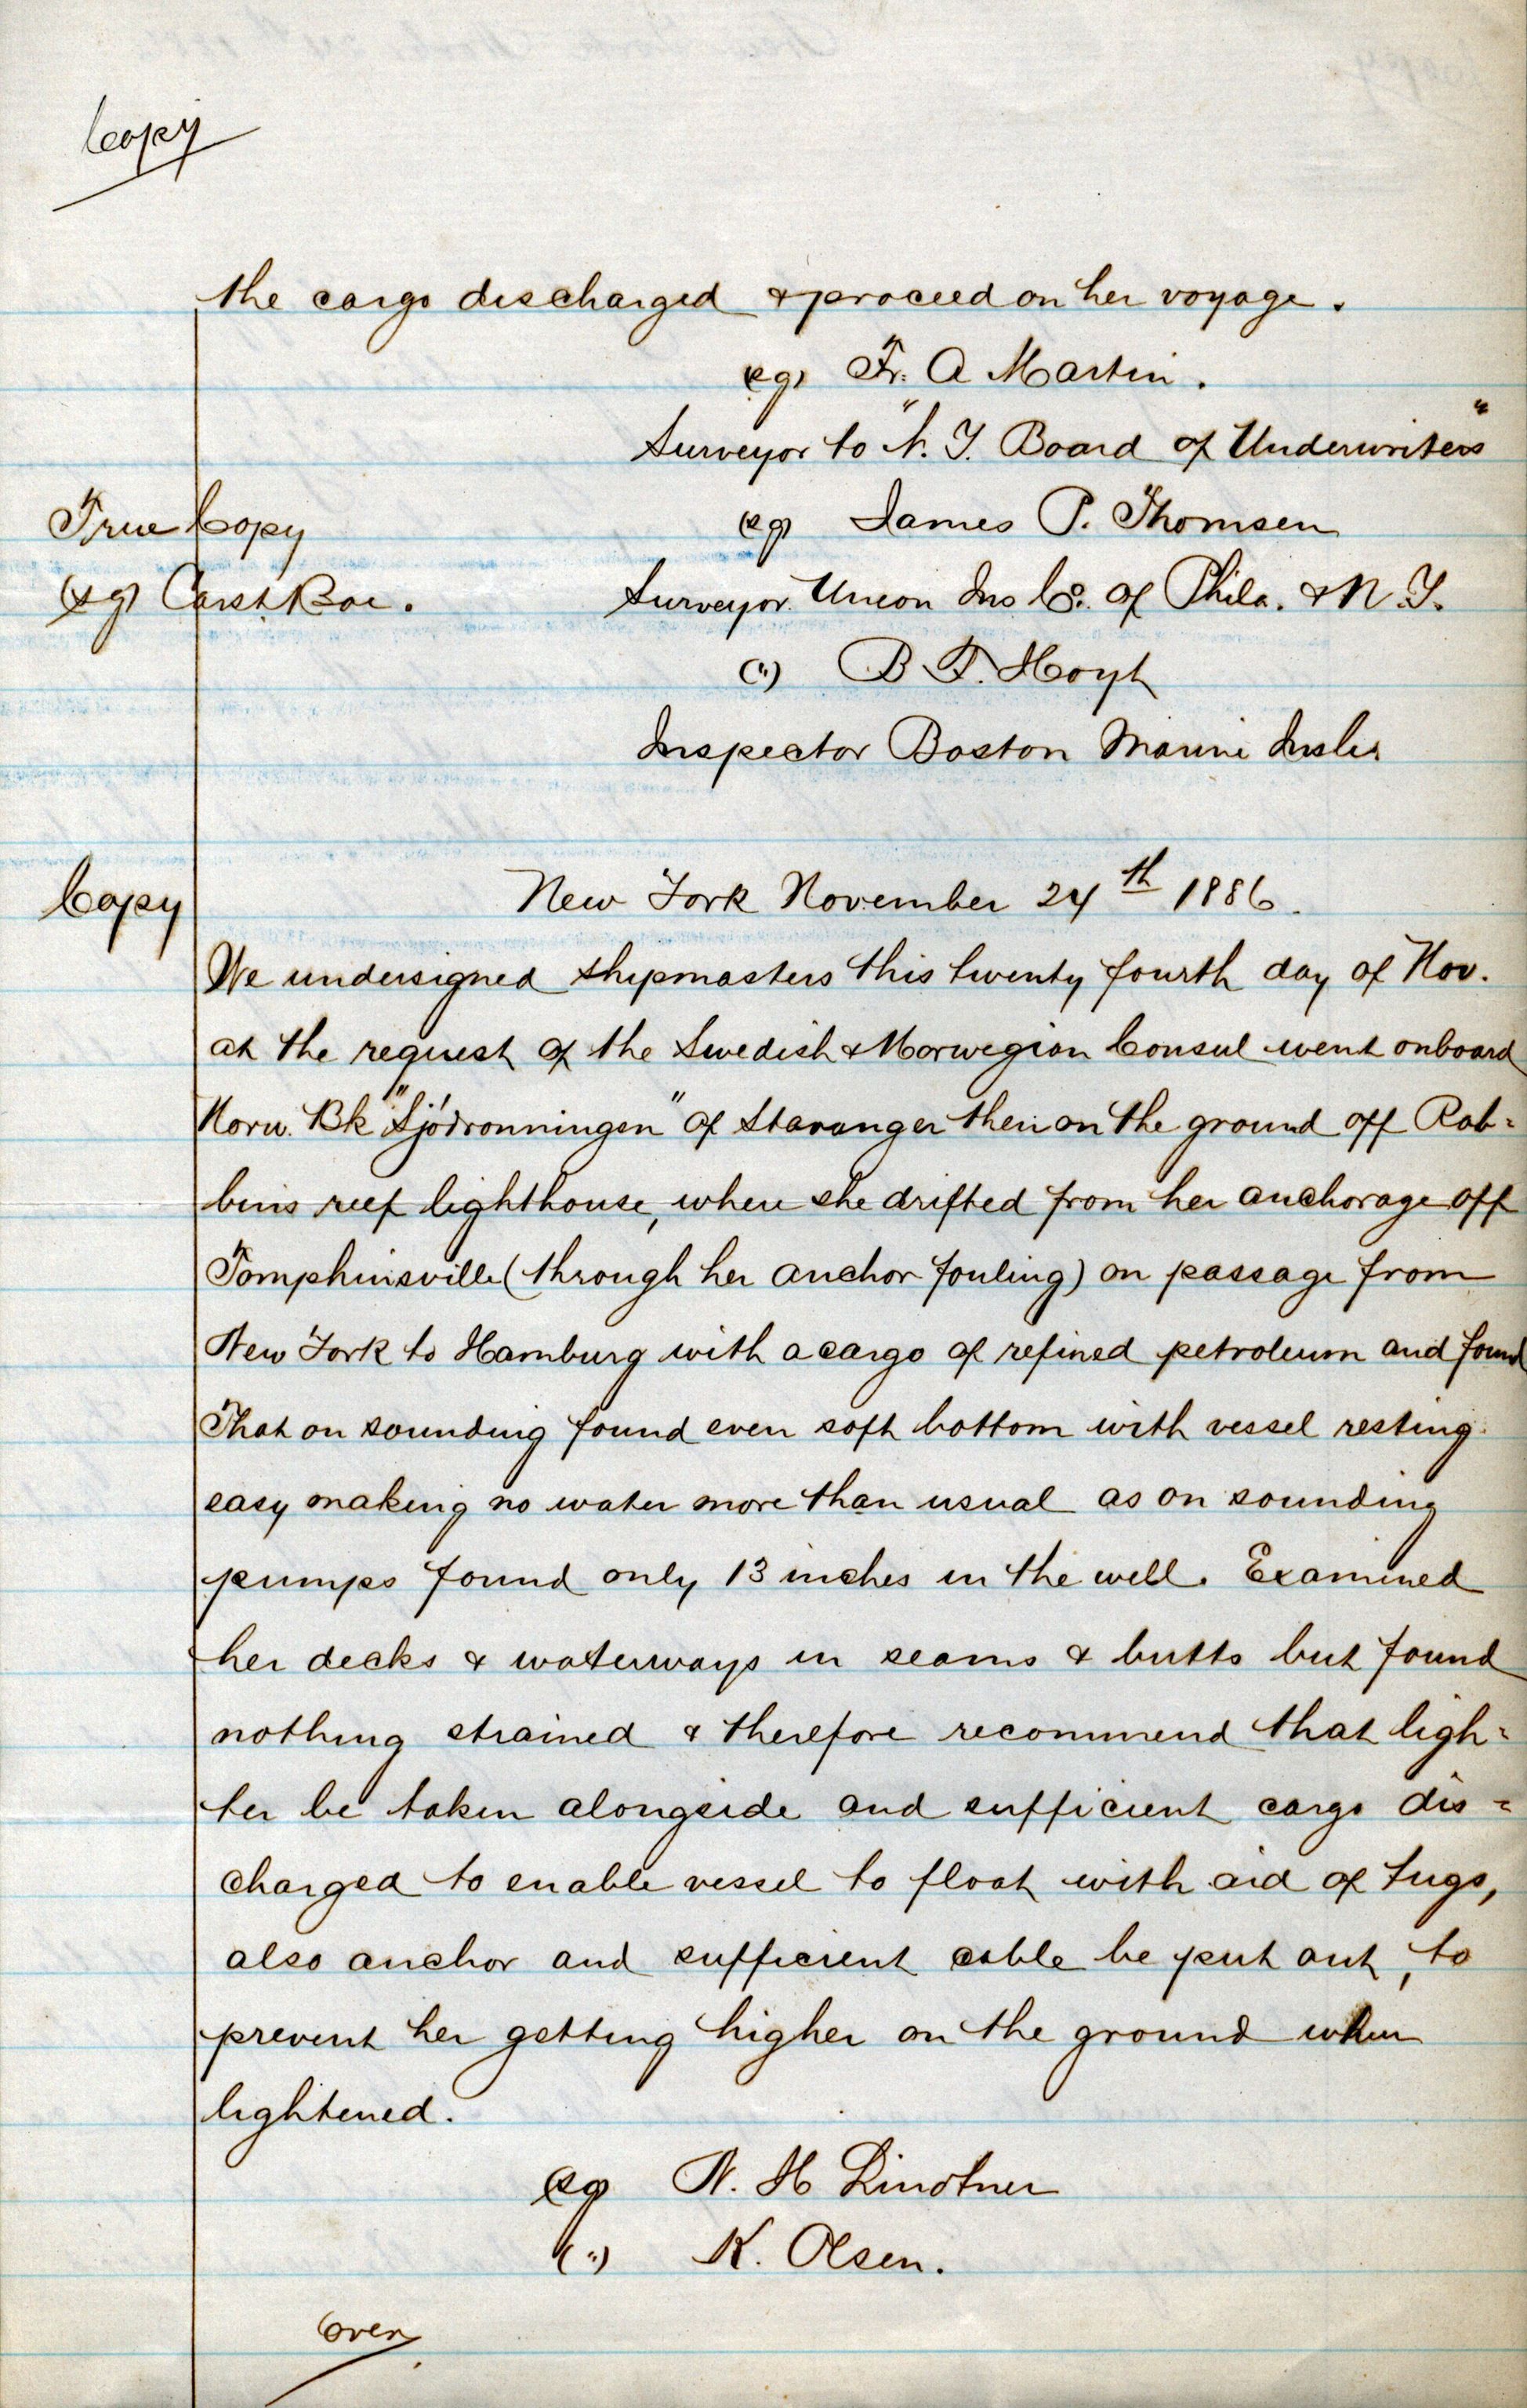 Copy
the cargo discharged & proceed on her voyage.
(sg) Fr. A Martin.
Surveyor to "N. Y. Board of Underwriters"
True Copy
(sg) James P. Thomsen
(sg) Carst. Boe.
Surveyor Union Ins Co. of Phila. & N. Y.
(") B F. Hoyt
Inspector Boston Marine Ins Co
Copy
New York November 24th 1886.
We undersigned shipmasters this twenty fourth day of Nov.
at the request of the Swedish & Norwegian Consul went onboard
Norw. Bk "Sjödronningen" of Stavanger then on the ground off Rob=
bins reef lighthouse, where she drifted from her anchorage off
Tomphinsville (through her anchor fouling) on passage from
New York to Hamburg with a cargo of refined petroleum and found
That on sounding found even soft bottom with vessel resting
easy making no water more than usual as on sounding
pumps found only 13 inches in the well. Examined
her decks & waterways in seams & butts but found
nothing strained & therefore recommend that ligh=
ter be taken alongside and sufficient cargo dis=
charged to enable vessel to float with aid of tugs,
also anchor and sufficient cable be put out, to
prevent her getting higher on the ground when
lightened.
(sg) N. H Lindtner
(") K. Olsen.
over